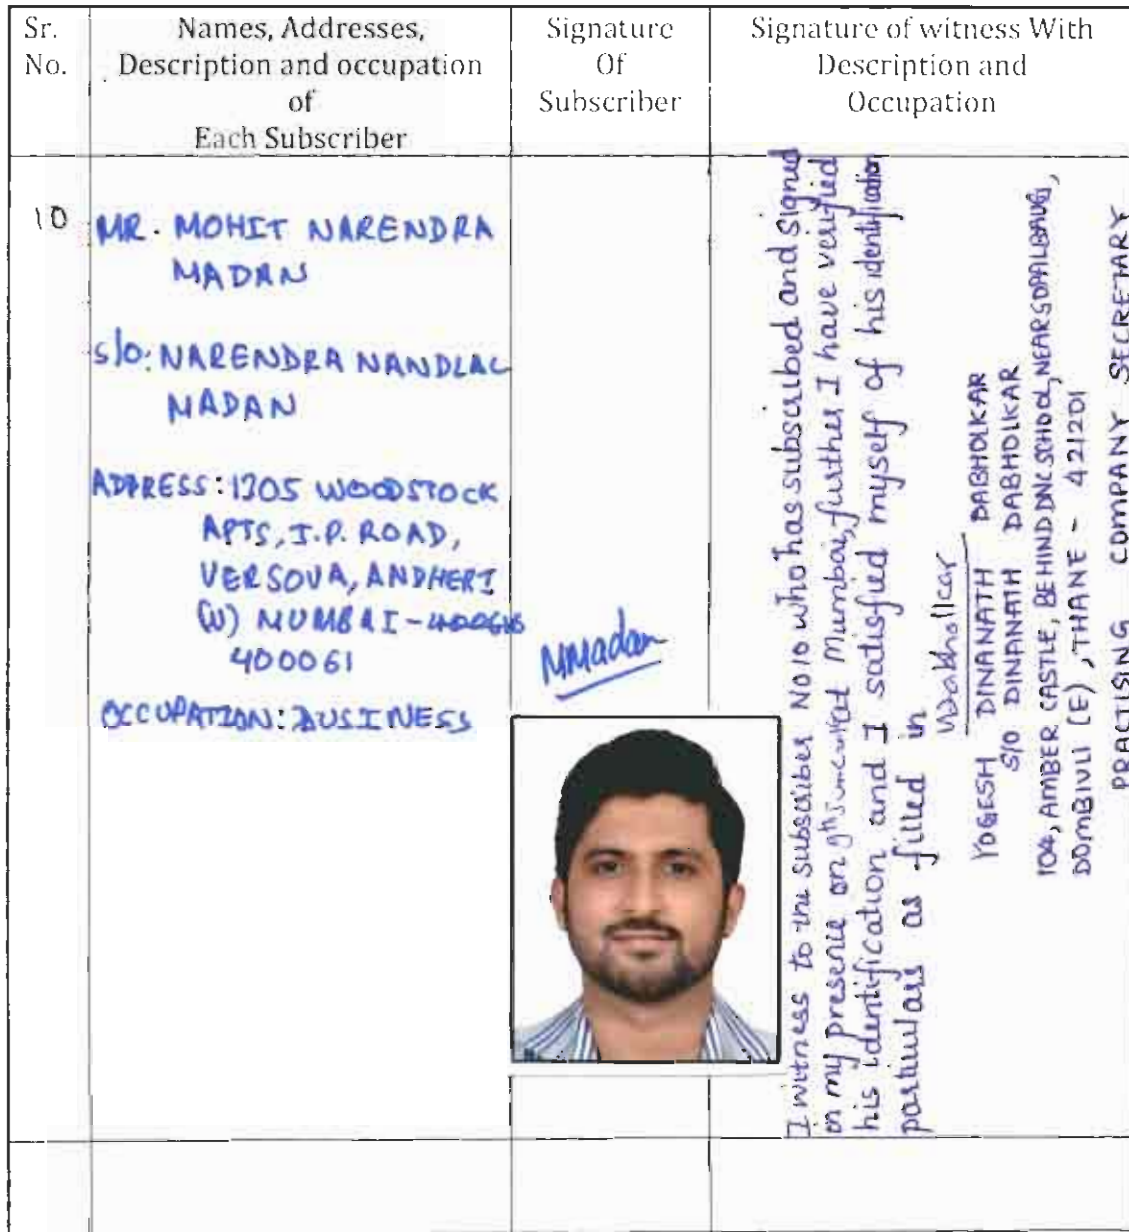 Sr.
No.
Names, Addresses,
Description and occupation
of
Each Subscriber
Signature
Of
Subscriber
Signature of witness With
Description and
Occupation
10
MR. MOHIT NARENDRA
MADAN
S/O: NARENDRA NANDLAL
MADAN
ADDRESS: 1305 WOODSTOCK
APTS, J.P. ROAD,
VERSOVA, ANDHERI
(W) MUMBAI -
400061
OCCUPATION: BUSINESS
MMadan
I witness to the subscriber No 10 who has subscribed and signed
in my presence on 9th at Mumbai, further I have verified
his identification and I satisfied myself of his identification
particulars as filled in
YOGESH DINANATH DABHOLKAR
S/O DINANATH DABHOLKAR
104, AMBER CASTLE, BEHIND DNC SCHOOL, NEAR GOPALBAUG,
DOMBIVLI (E), THANE - 421201
PRACTISING COMPANY SECRETARY